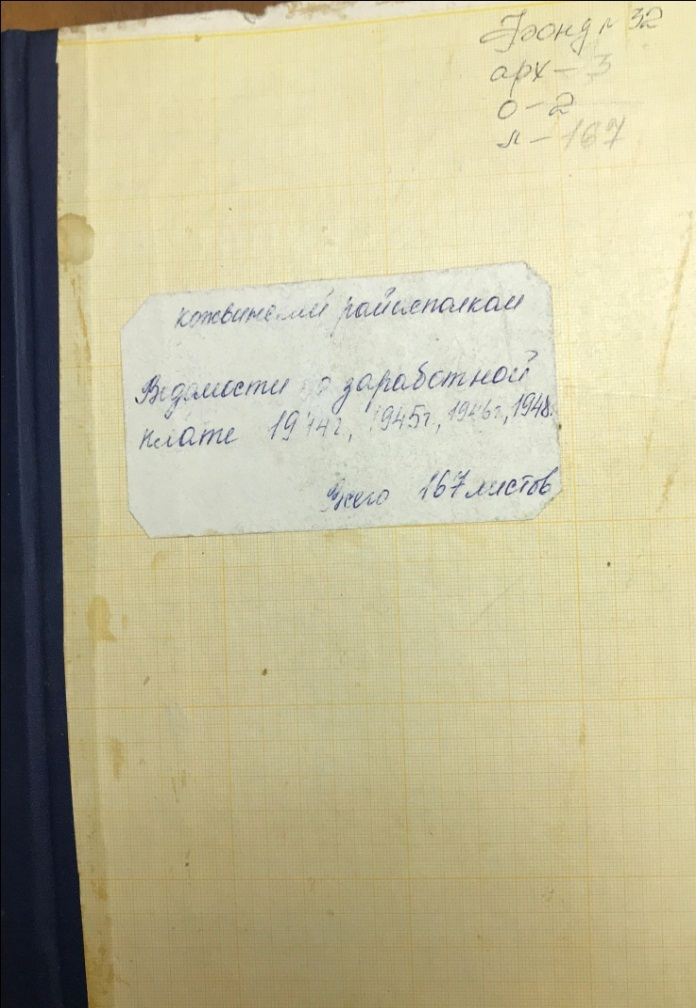 Фонд № 32
арх – 3
о – 2
л – 167
кожвинский райисполком
Ведомости по заработной
плате 1944г., 1945г., 1946г., 1948г.
Всего 167 листов